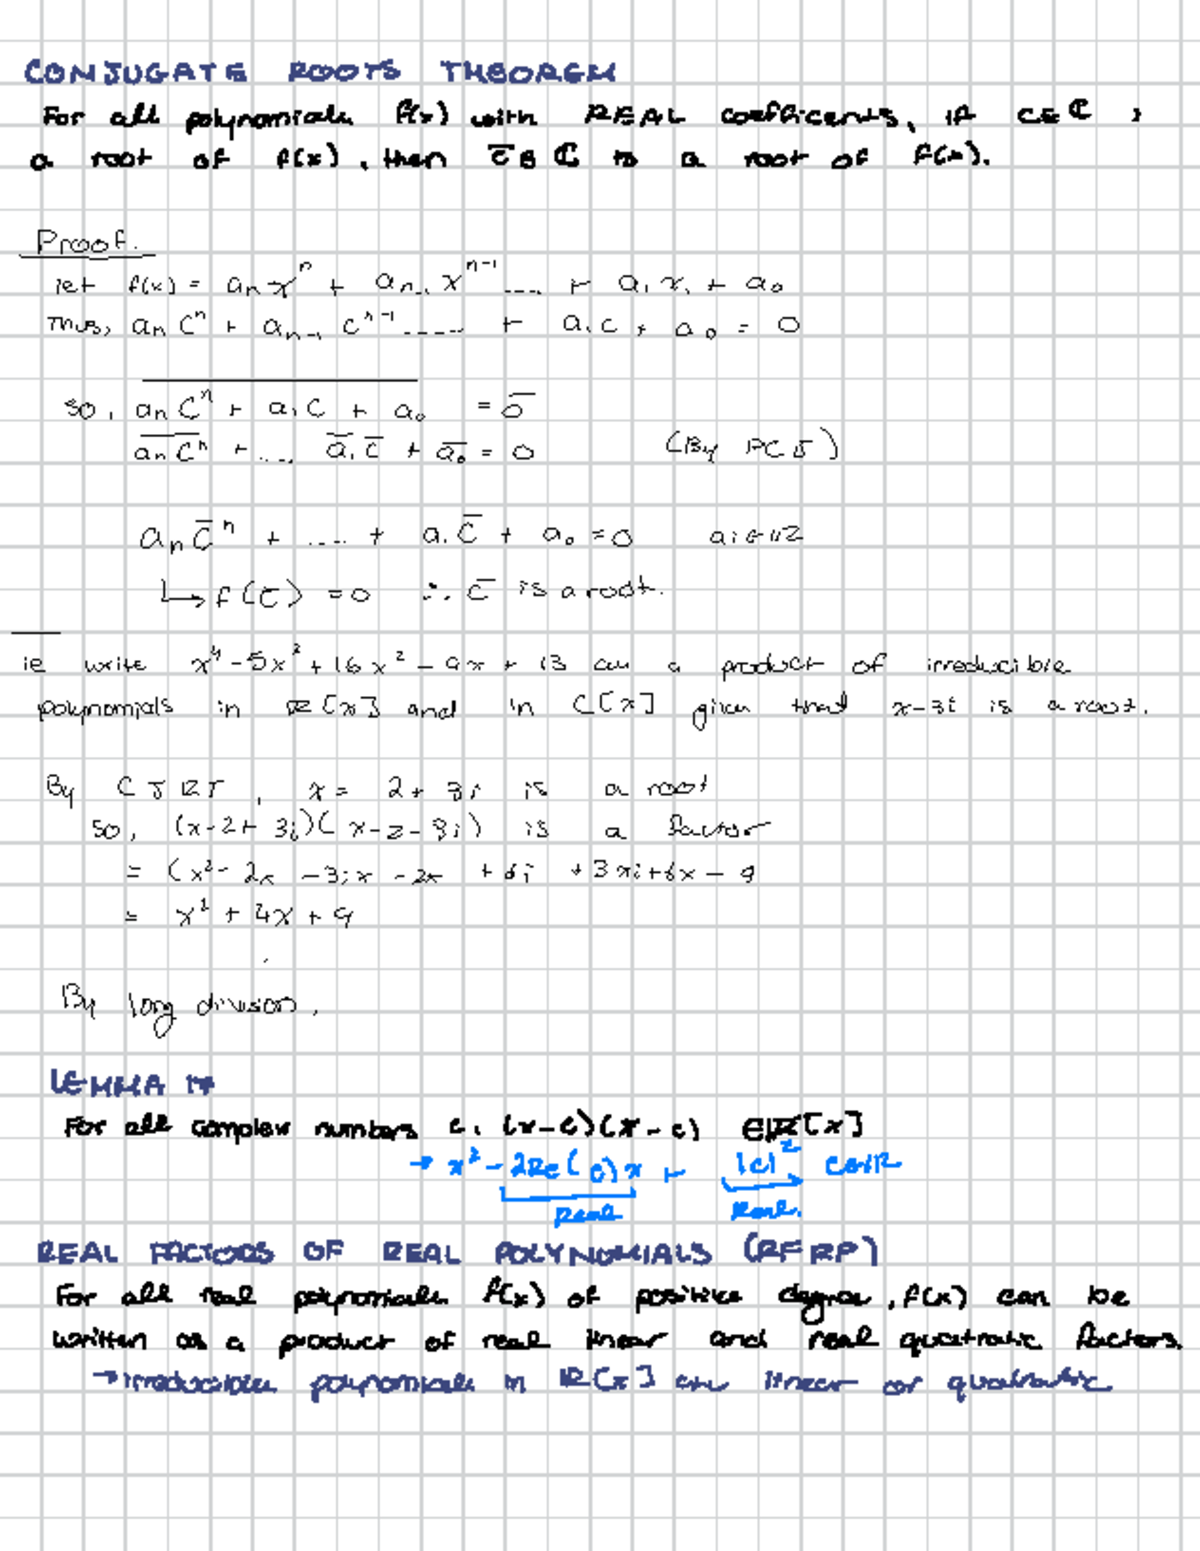 CONJUGATE ROOTS THEOREM
For all polynomials f(x) with REAL coefficents, if c∈ℂ is
a root of f(x), then c̅ ∈ ℂ is a root of f(x).
Proof.
let f(x) = aₙxⁿ + aₙ₋₁xⁿ⁻¹ .... + a₁x + a₀
Thus, aₙcⁿ + aₙ₋₁cⁿ⁻¹ ..... + a₁c + a₀ = 0
so, aₙcⁿ + a₁c + a₀ = 0̅
aₙcⁿ + .... a̅₁c̅ + a̅₀ = 0 (By PCJ)
aₙc̅ⁿ + .... + a₁c̅ + a₀ = 0 aᵢ∈ℝ
↳ f(c̅) = 0 ∴ c̅ is a root.
ie write x⁴ - 5x³ + 16x² - 9x + 13 as a product of irreducible
polynomials in ℝ[x] and in ℂ[x] given that x-3i is a root.
By CJRT, x = 2+3i is a root
so, (x-2+3i)(x-2-3i) is a factor
= (x² - 2x - 3ix - 2x + 6i + 3xi + 6x - 9
= x² + 4x + 9
By long division,
LEMMA 17
For all complex numbers c, (x-c)(x-c) ∈ℝ[x]
→ x² - 2Re(c)x + |c|² c∈ℝ
Real Real.
REAL FACTORS OF REAL POLYNOMIALS (RFRP)
For all real polynomials f(x) of positive degree, f(x) can be
written as a product of real linear and real quatratic factors.
→ irreducible polynomials in ℝ[x] are linear or quatratic